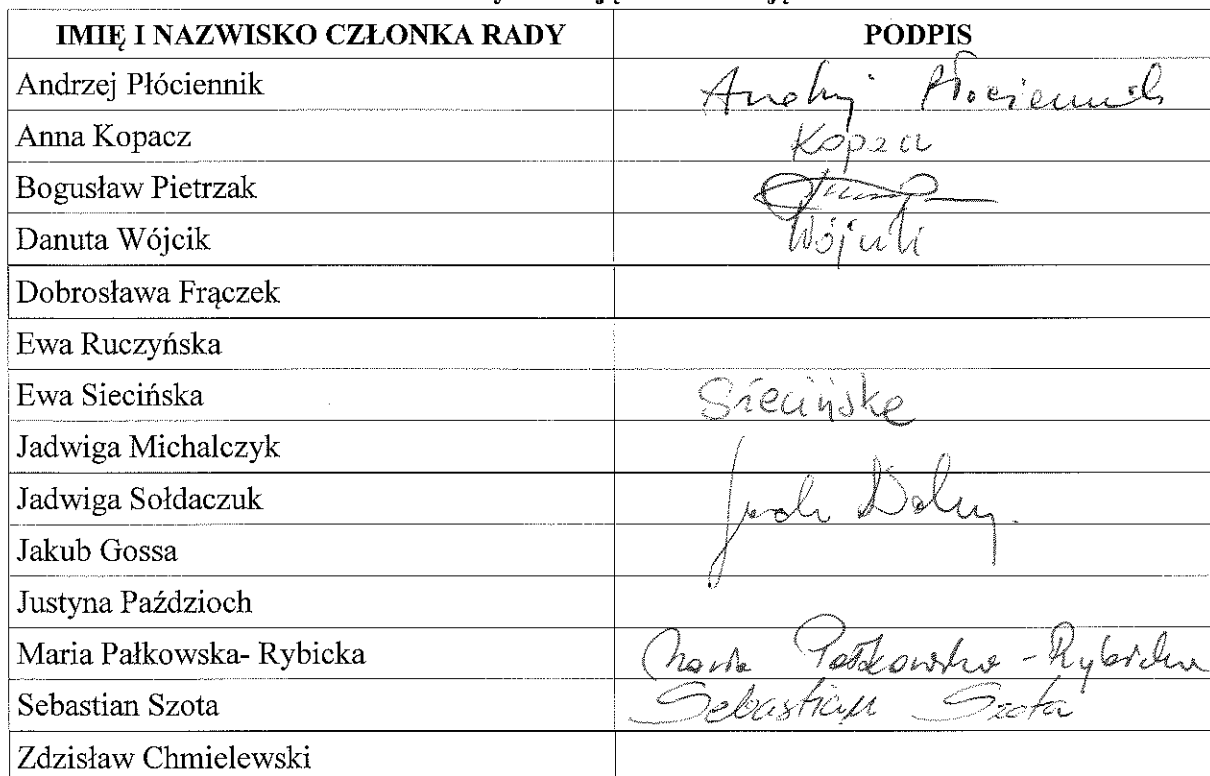 IMIĘ I NAZWISKO CZŁONKA RADY PODPIS
Andrzej Płóciennik Andrzej Płóciennik
Anna Kopacz Kopacz
Bogusław Pietrzak
Danuta Wójcik Wójcik
Dobrosława Frączek
Ewa Ruczyńska
Ewa Siecińska Siecińska
Jadwiga Michalczyk
Jadwiga Sołdaczuk
Jakub Gossa
Justyna Paździoch
Maria Pałkowska- Rybicka Maria Pałkowska-Rybicka
Sebastian Szota Sebastian Szota
Zdzisław Chmielewski